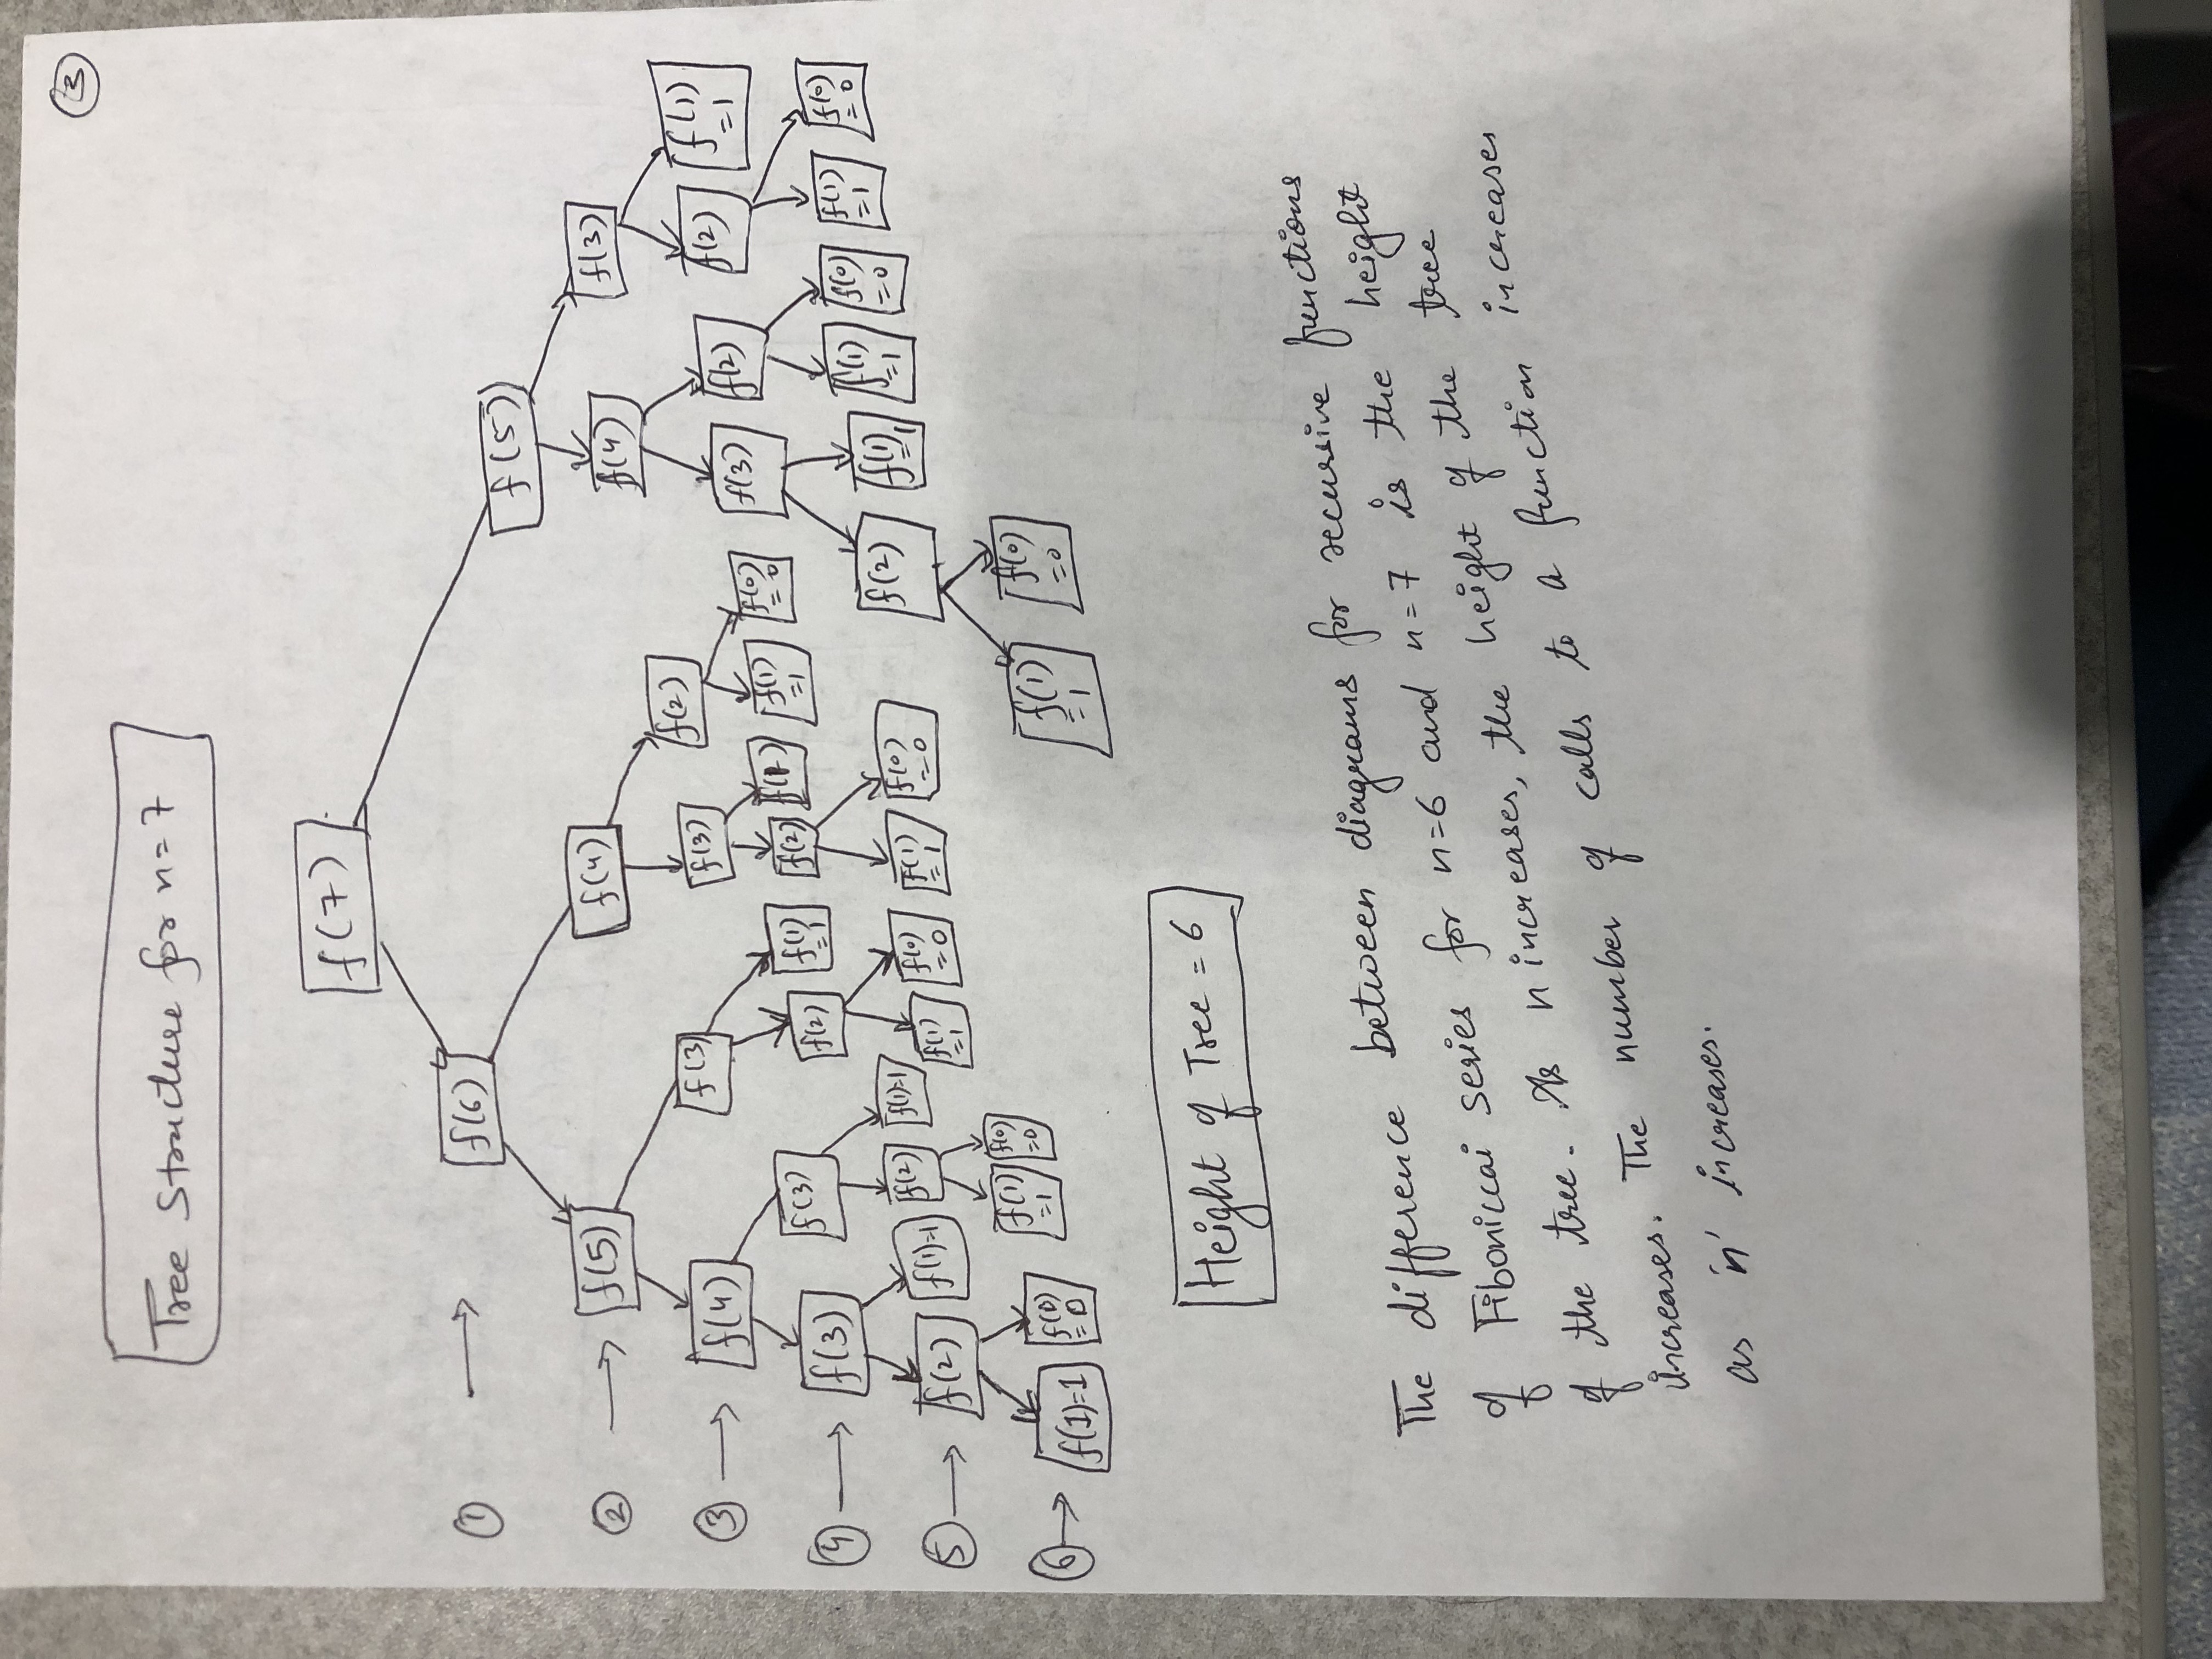 3
Tree Structure for n=7
f(7)
① → f(6) f(5)
② → f(5) f(4) f(4) f(3)
③ → f(4) f(3) f(3) f(2) f(3) f(2) f(2) f(1)=1
④ → f(3) f(3) f(2) f(1)=1 f(2) f(1) f(1)=1 f(0)=0 f(2) f(1)=1 f(1)=1 f(0)=0 f(1)=1 f(0)=0
⑤ → f(2) f(1)=1 f(2) f(1)=1 f(1)=1 f(0)=0 f(1)=1 f(0)=0 f(1)=1 f(0)=0
⑥ → f(1)=1 f(0)=0 f(1)=1 f(0)=0
Height of Tree = 6
The difference between diagrams for recurssive functions
of Fiboniccai series for n=6 and n=7 is the height
of the tree. As n increases, the height of the tree
increases. The number of calls to a function increases
as 'n' increases.